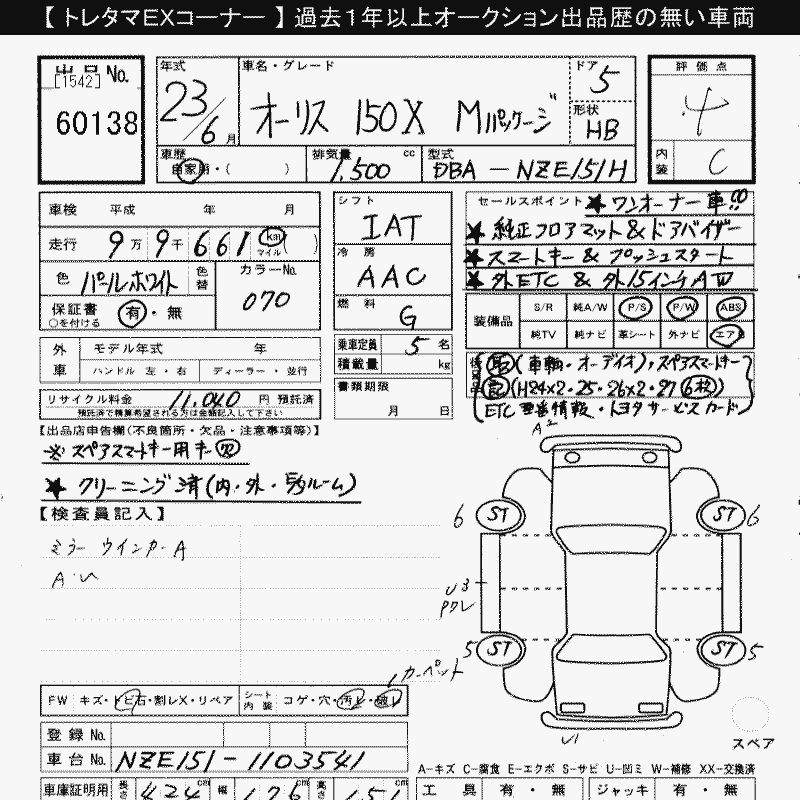 【 トレタマEXコーナー 】 過去1年以上オークション出品歴の無い車両
出品 No.
[1542]
60138
年式
23/6 月
車名・グレード
オーリス 150X Mパッケージ
ドア 5
形状 HB
評価点
4
内装 C
車歴
自家用・( )
排気量 cc
1,500
型式
DBA - NZE151H
車検 平成 年 月
走行 9万 9千 661 km マイル ( )
色 パールホワイト 色替
カラーNo. 070
保証書 有・無
○を付ける
シフト
IAT
冷房
AAC
燃料
G
セールスポイント ★ワンオーナー車!!
★純正フロアマット&ドアバイザー
★スマートキー&プッシュスタート
★外ETC & 外15インチAW
装備品 S/R 純A/W P/S P/W ABS
純TV 純ナビ 革シート 外ナビ エアB
外車 モデル年式 年
ハンドル 左・右 ディーラー・並行
乗車定員 5 名
積載量 kg
書類期限
月 日
リサイクル料金 11,040 円 預託済
預託済で精算希望される方は金額記入して下さい
取(車輌・オーディオ),スペアスマートキー
記(H24x2・25・26x2・27 6枚)
ETC 情報・トヨタサービスカード
【出品店申告欄(不良箇所・欠品・注意事項等)】
※スペアスマートキー用キー欠
★ クリーニング済(内・外・ルーム)
【検査員記入】
ミラー ウインカーA
A・U
A2
6 ST ST 6
U3
Pクレ
5 ST ST 5
カーペット
U1
スペア
FW キズ・トビ石・割レX・リペア シート内装 コゲ・穴・汚レ・破レ
登録 No.
車台 No. NZE151-1103541
A-キズ C-腐食 E-エクボ S-サビ U-凹ミ W-補修 XX-交換済
車庫証明用 長さ 424 cm 幅 176 cm 高さ 151 cm
工具 有・無 ジャッキ 有・無